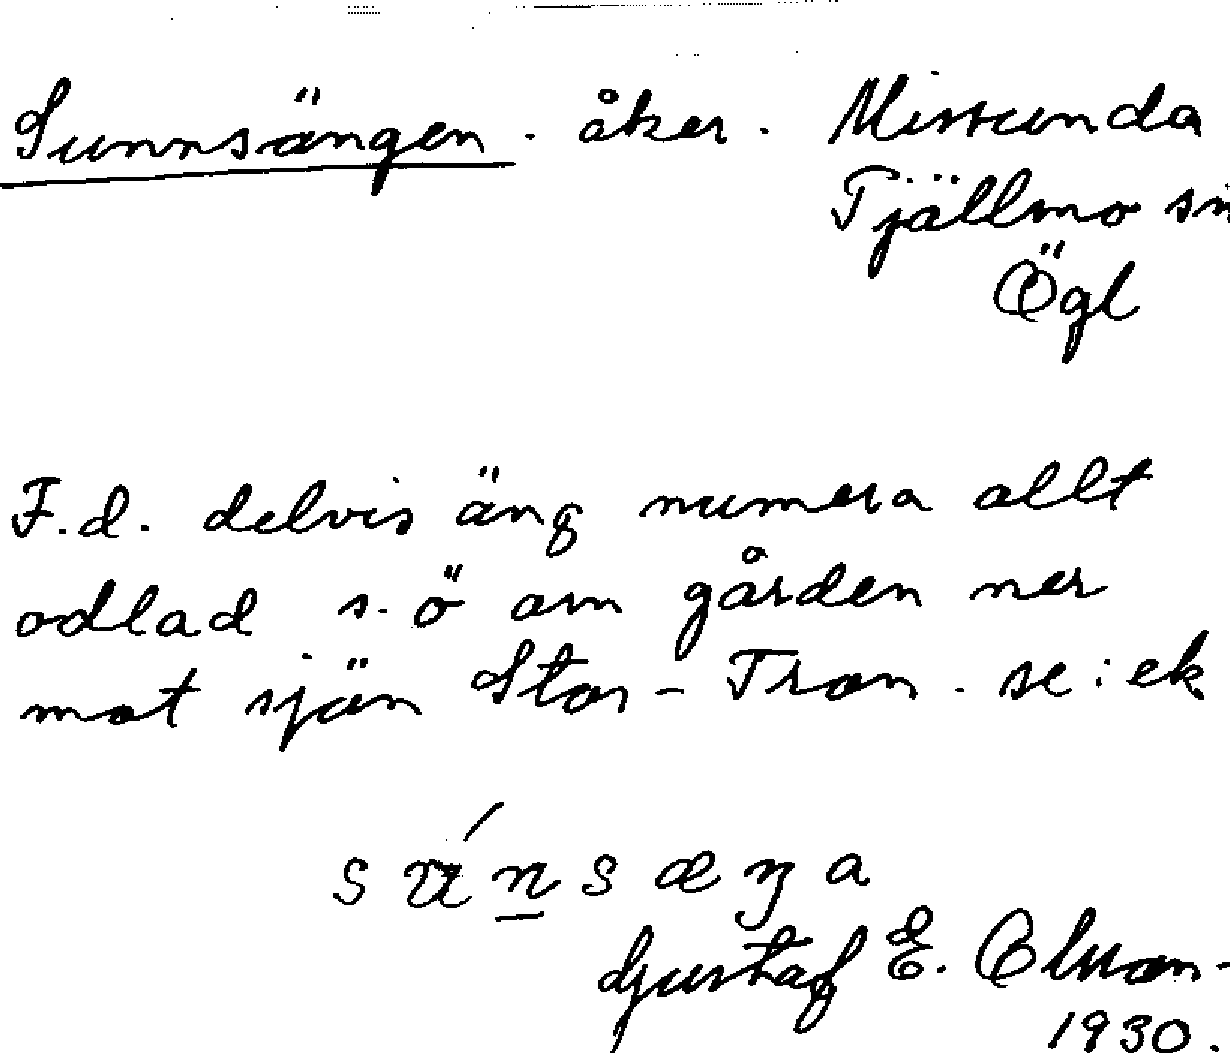 Sunnsängen. åker. Mistunda
Tjällmo sn
Ögl
F.d. delvis äng numera allt
odlad s. ö om gården ner
mot sjön Stor-Tron. se: ek
Gustaf E. Olson-
1930.